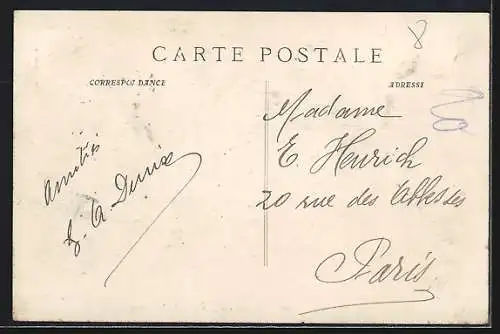 CARTE POSTALE
8
CORRESPONDANCE
ADRESSE
Amitiés
Madame
E. Henrich
20 rue des Abbesses
Paris